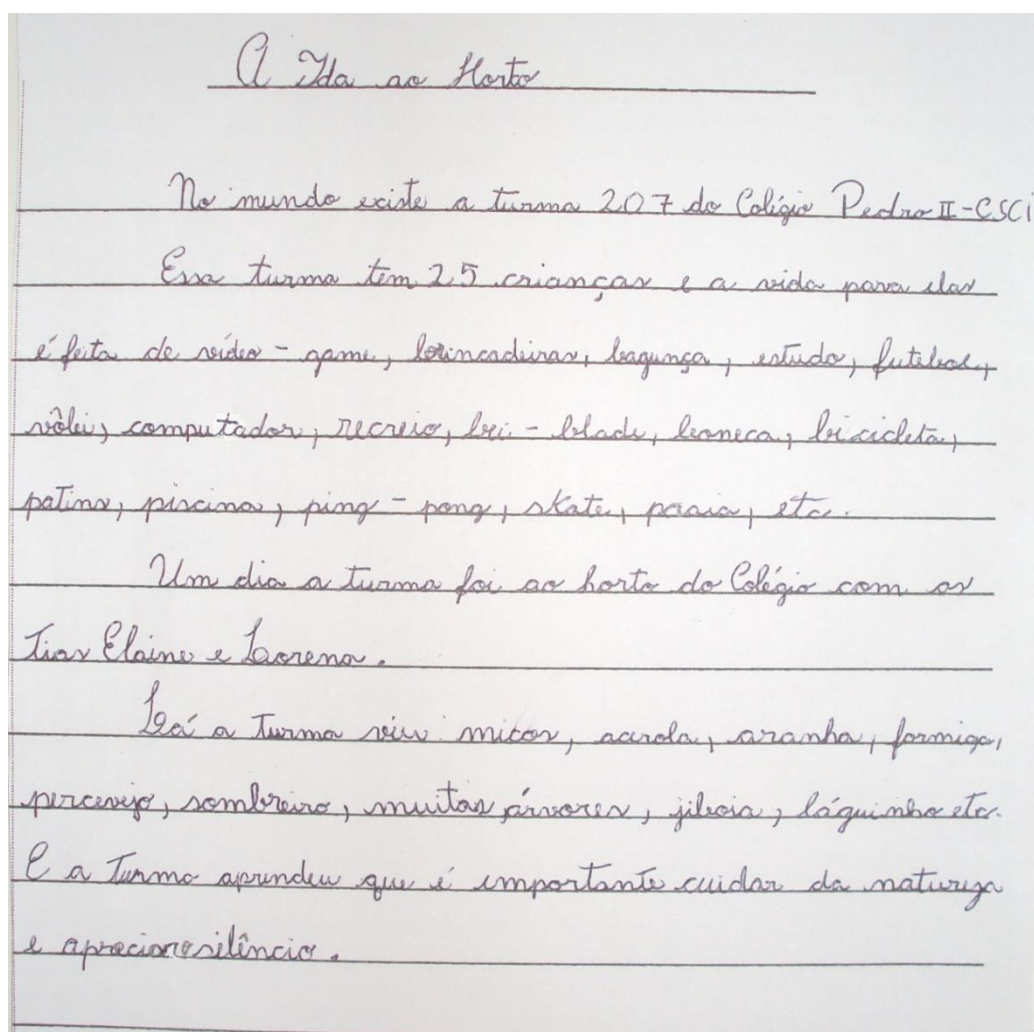 A Ida ao Horto
No mundo existe a turma 207 do Colégio Pedro II-CSCI
Essa turma tem 25 crianças e a vida para elas
é feita de vídeo-game, brincadeiras, bagunça, estudo, futebol,
vôlei, computador, recreio, bei-blade, boneca, bicicleta,
patins, piscina, ping-pong, skate, praia, etc.
Um dia a turma foi ao horto do Colégio com as
tias Elaine e Lorena.
Lá a turma viu: micos, acerola, aranha, formiga,
percevejo, sombreiro, muitas árvores, jiboia, laguinho etc.
E a turma aprendeu que é importante cuidar da natureza
e apreciar o silêncio.